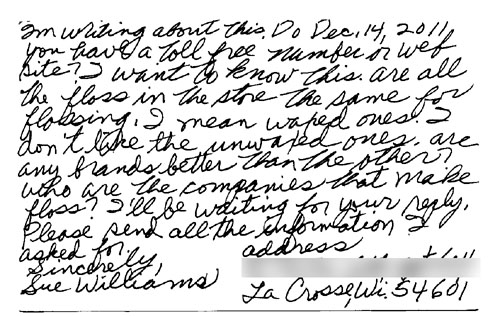 I'm writing about this. Do Dec. 14, 2011
you have a toll free number or web
site? I want to know this. are all
the floss in the store the same for
flossing. I mean waxed ones. I
don't like the unwaxed ones. are
any brands better than the other?
who are the companies that make
floss? I'll be waiting for your reply.
Please send all the information I
asked for. address
Sincerely,
Sue Williams La Crosse, Wi. 54601